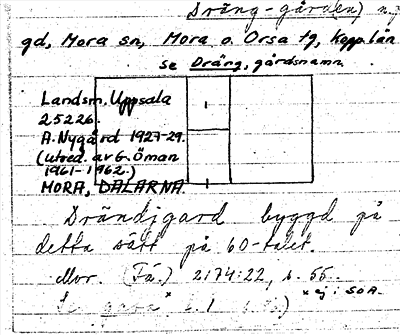 Dräng-gård(en) n.
gd, Mora sn, Mora o. Orsa tg, Kopp. län
se Dräng, gårdsnamn.
Landsm. Uppsala
25226.
A. Nygård 1927-29.
(utred. av G. Öman
1961-1962.)
MORA, DALARNA.
Drändjgard byggd på
detta sätt på 60-talet.
Mor. (Få.) 2174:22, s. 55.
* ej i SOA.